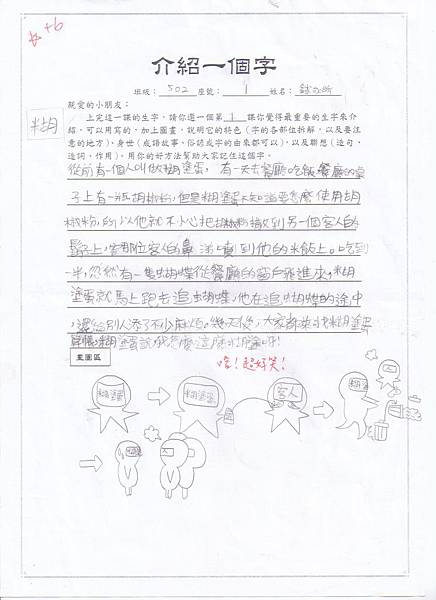 +6
介紹一個字
班級：502 座號：1 姓名：
糊
親愛的小朋友：
上完這一課的生字，請你選一個第1課你覺得最重要的生字來介
紹，可以用寫的，加上圖畫，說明它的特色（字的各部位拆解，以及要注
意的地方）、身世（成語故事、俗諺或字的由來都可以），以及聯想（造句、
造詞、作用），用你的好方法幫助大家記住這個字。
從前有一個人叫做糊塗蛋，有一天去餐廳吃飯，餐廳的桌
子上有一瓶胡椒粉，但是糊塗蛋不知道要怎麼使用胡
椒粉，所以他就不小心把胡椒粉撒到另一個客人的
鼻子上，害那位客人的鼻涕噴到他的米飯上。吃到
一半，忽然有一隻蝴蝶從餐廳的窗戶飛進來，糊
塗蛋就馬上跑去追蝴蝶，他在追蝴蝶的途中
，還給別人添了不少麻煩。幾天後，大家都來找糊塗蛋
算帳，糊塗蛋說我怎麼這麼糊塗呀！
畫圖區
哈！超好笑！
糊塗蛋
糊塗蛋
客人
糊塗